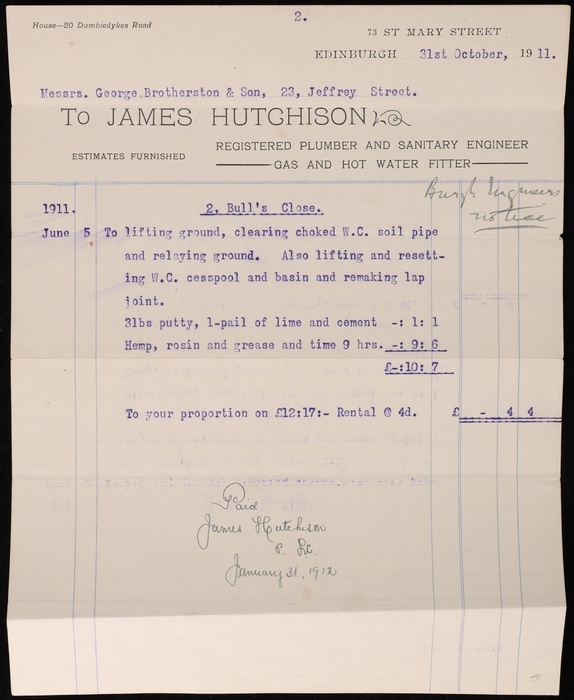 2.
House—20 Dumbiedykes Road
73 ST MARY STREET
EDINBURGH 31st October, 1911.
Messrs. George Brotherston & Son, 23, Jeffrey Street.
To JAMES HUTCHISON
REGISTERED PLUMBER AND SANITARY ENGINEER
ESTIMATES FURNISHED
GAS AND HOT WATER FITTER
Burgh Engineers
notice
1911. 2, Bull's Close.
June 5 To lifting ground, clearing choked W.C. soil pipe
and relaying ground. Also lifting and resett-
ing W.C. cesspool and basin and remaking lap
joint.
3lbs putty, 1-pail of lime and cement -: 1: 1
Hemp, rosin and grease and time 9 hrs. -: 9: 6
£-:10: 7
To your proportion on £12:17:- Rental @ 4d. £ - 4 4
Paid
James Hutchison
January 31, 1912